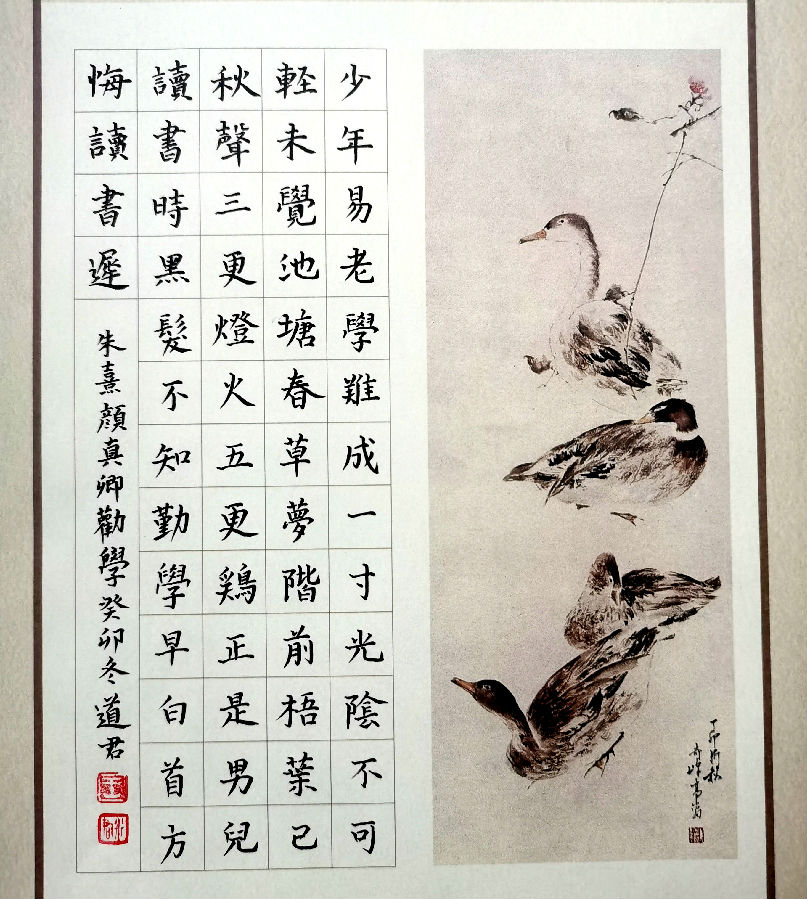 少年易老學難成一寸光陰不可
軽未覺池塘春草夢階前梧葉已
秋聲三更燈火五更鶏正是男兒
讀書時黑髮不知勤學早白首方
悔讀書遲
朱熹顔真卿勸學癸卯冬道君